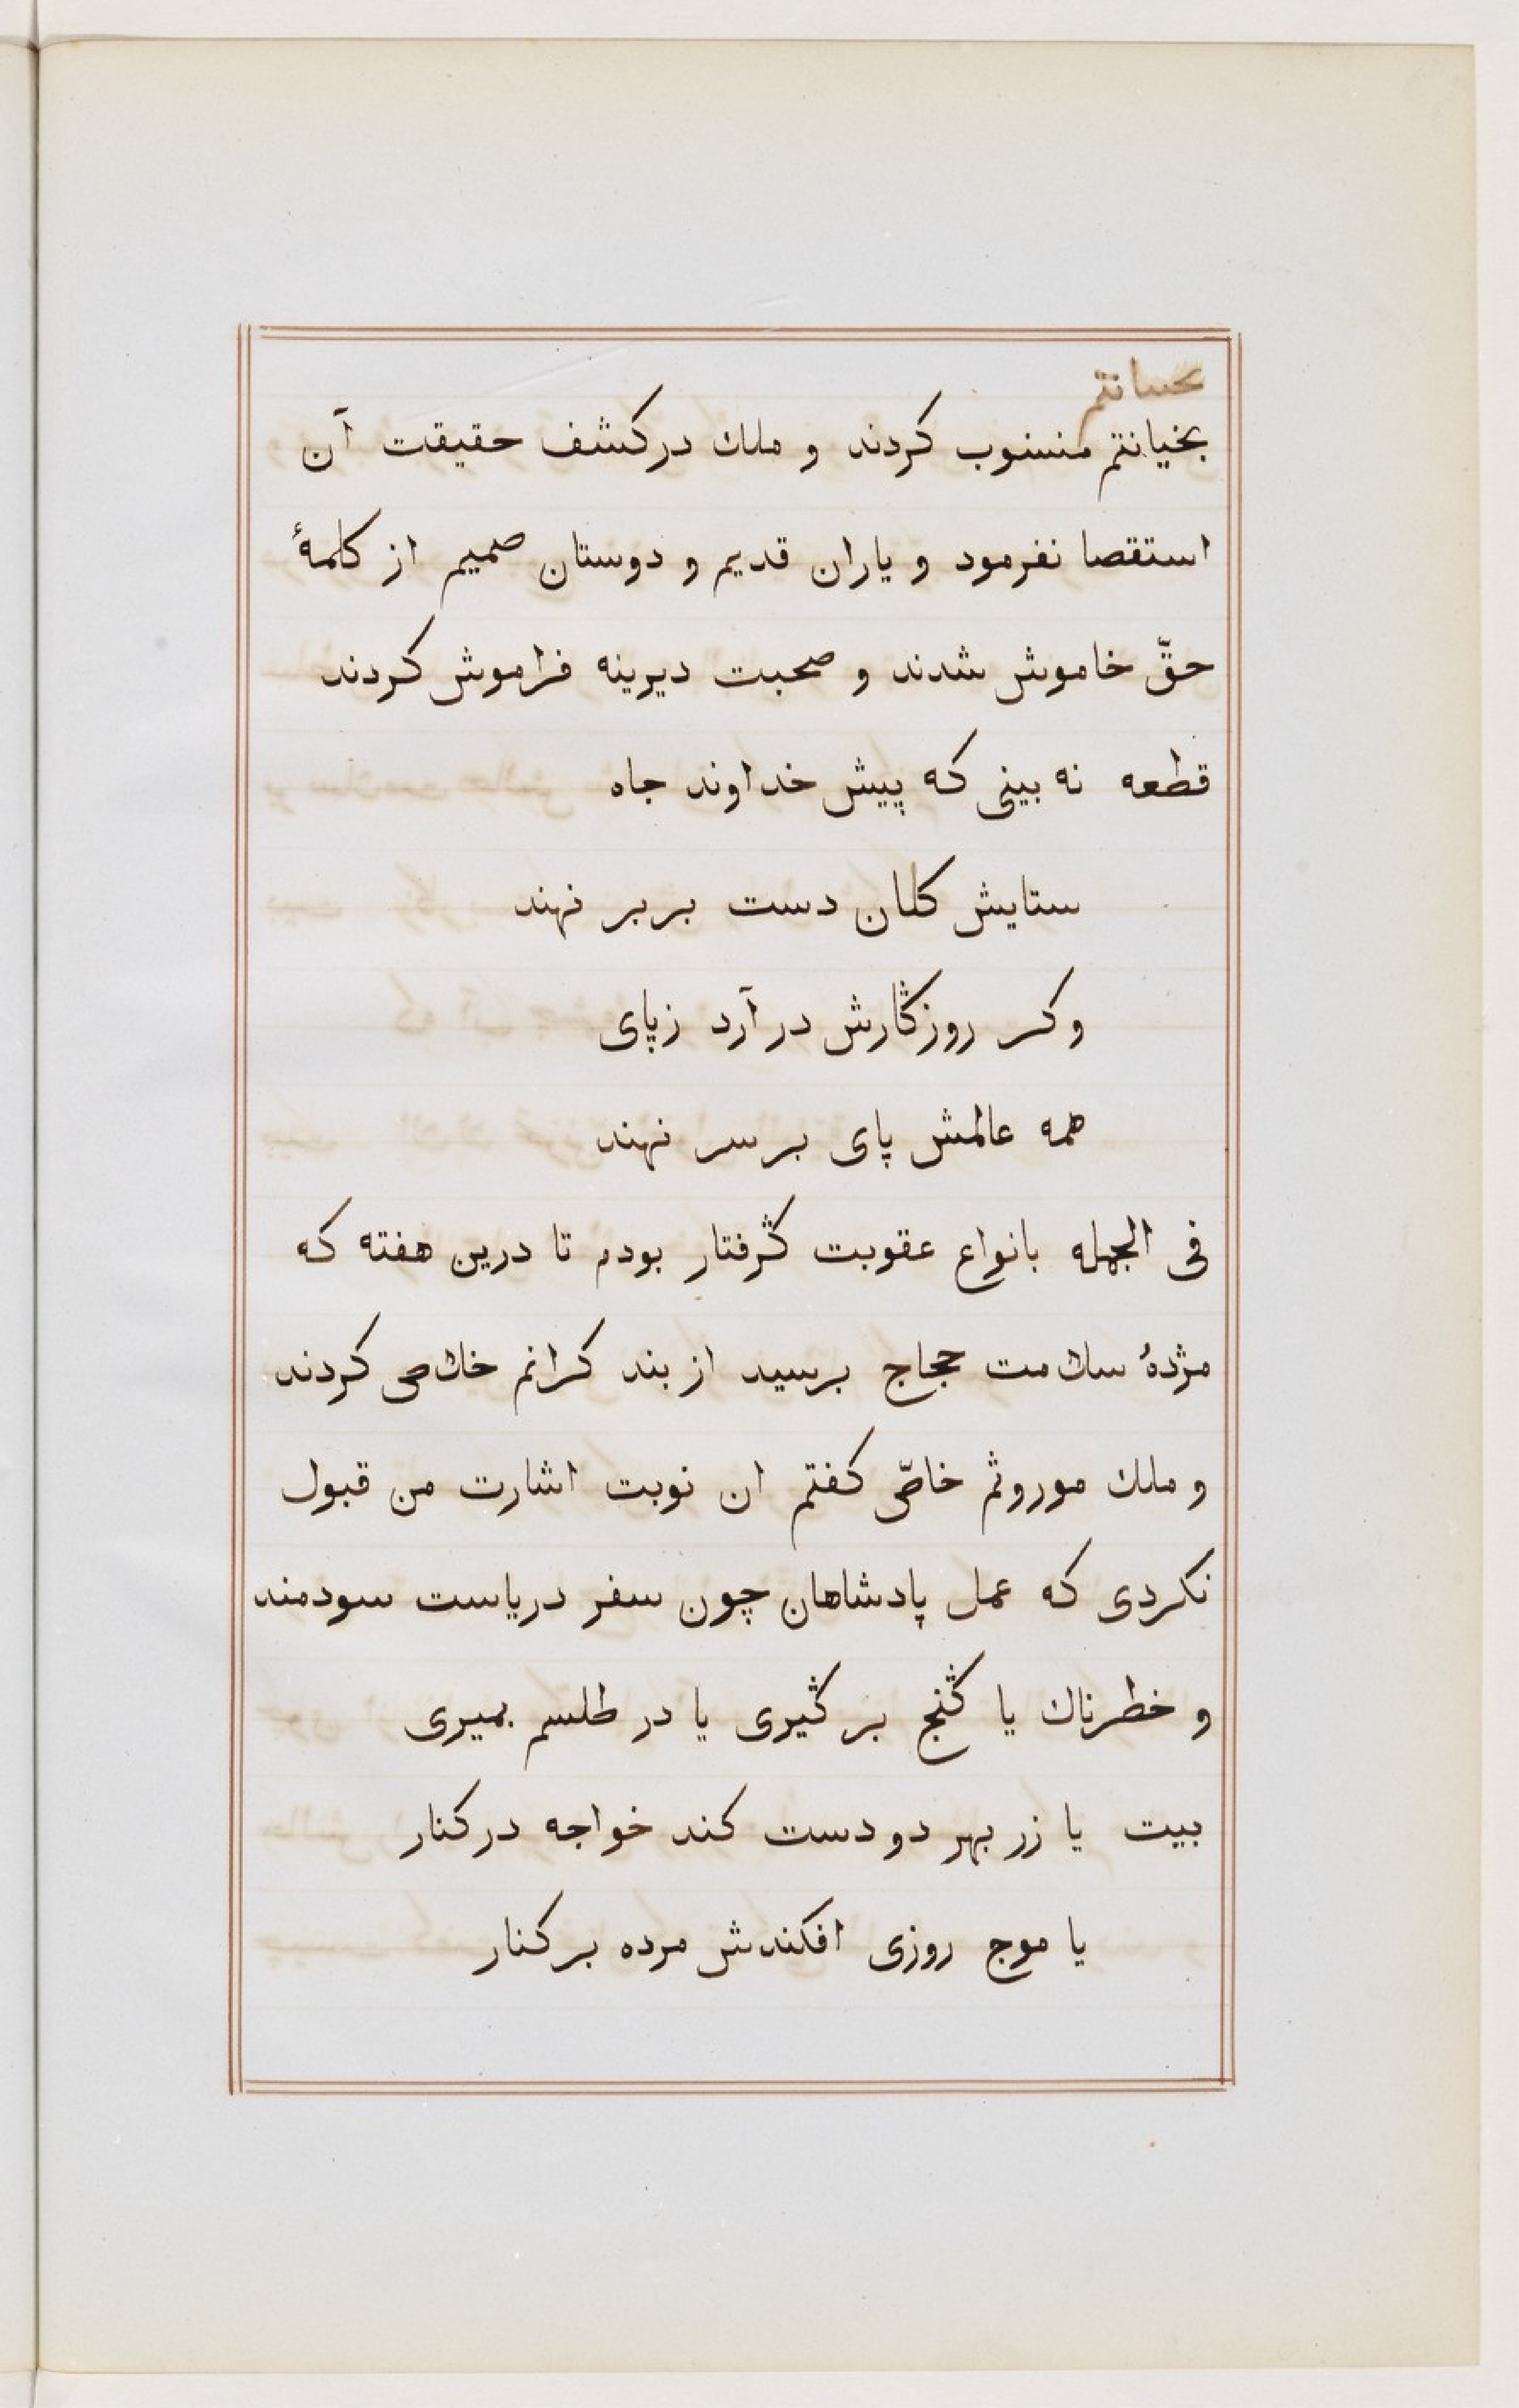 بخیانتم
بخیانتم منسوب کردند و ملك در کشف حقیقت آن
استقصا نفرمود و یاران قدیم و دوستان صمیم از کلمهٔ
حقّ خاموش شدند و صحبت دیرینه فراموش کردند
قطعه نه بینی که پیش خداوند جاه
ستایش کنان دست بربر نهند
وکر روزگارش در آرد زپای
همه عالمش پای بر سر نهند
فی الجمله بانواع عقوبت گرفتار بودم تا درین هفته که
مژدهٔ سلامت حجاج برسید از بند کرانم خلاص کردند
و ملك موروثم خاصّ کفتم ان نوبت اشارت من قبول
نکردی که عمل پادشاهان چون سفر دریاست سودمند
و خطرناك یا گنج بر گیری یا در طلسم بمیری
بیت یا زر بهر دو دست کند خواجه در کنار
یا موج روزی افکندش مرده بر کنار